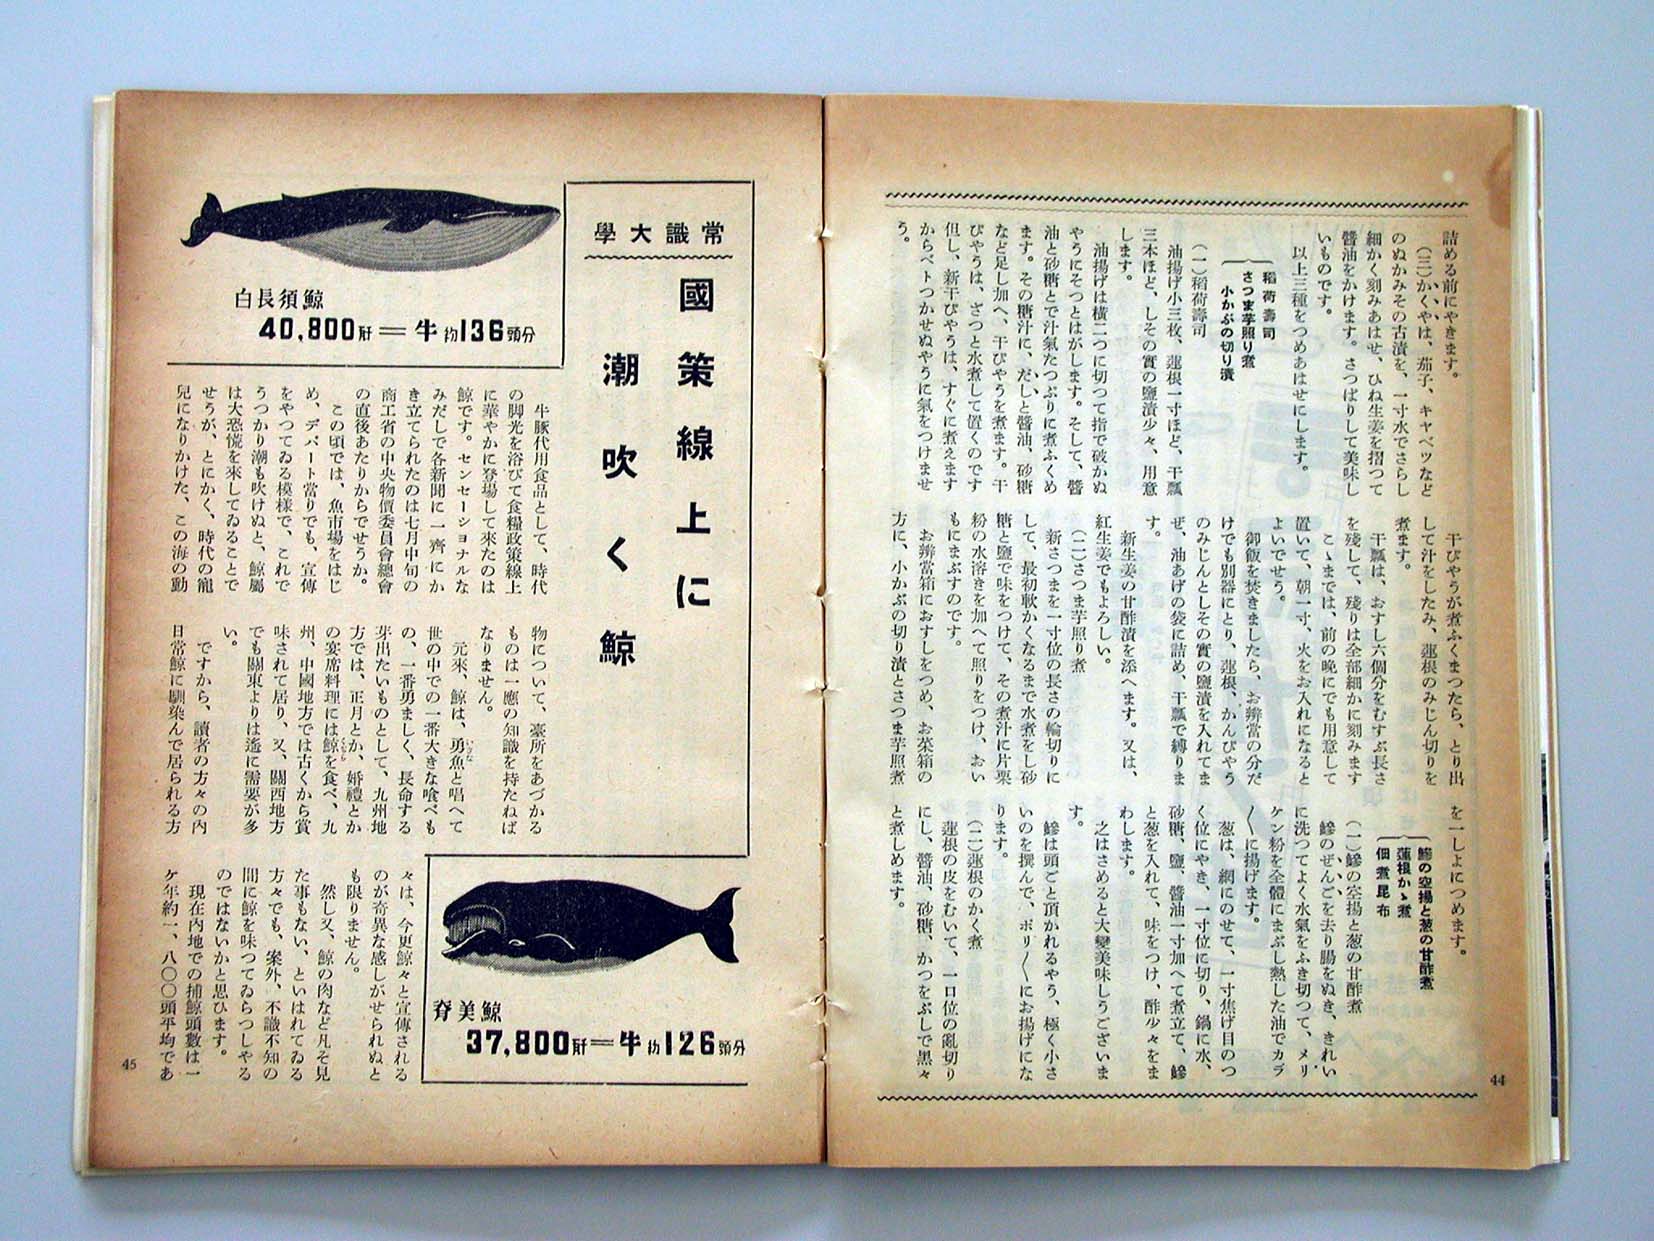 詰める前にやきます。
（三）かくやは、茄子、キャベツなど
のぬかみその古漬を、一寸水でさらし
細かく刻みあはせ、ひね生姜を摺つて
醬油をかけます。さつぱりして美味し
いものです。
以上三種をつめあはせにします。
稻荷壽司
さつま芋照り煮
小かぶの切り漬
（一）稻荷壽司
油揚げ小三枚、蓮根一寸ほど、干瓢
三本ほど、しその實の鹽漬少々、用意
します。
油揚げは橫二つに切つて指で破かぬ
やうにそつとはがします。そして、醬
油と砂糖とで汁氣たつぷりに煮ふくめ
ます。その糖汁に、だしと醬油、砂糖
など足し加へ、干ぴやうを煮ます。干
ぴやうは、ざつと水煮して置くのです
但し、新干ぴやうは、すぐに煮えます
からベトつかせぬやうに氣をつけませ
う。
干ぴやうが煮ふくまつたら、とり出
して汁をしたみ、蓮根のみじん切りを
煮ます。
干瓢は、おすし六個分をむすぶ長さ
を殘して、殘りは全部細かに刻みます
こゝまでは、前の晩にでも用意して
置いて、朝一寸、火をお入れになると
よいでせう。
御飯を焚きましたら、お辨當の分だ
けでも別器にとり、蓮根、かんぴやう
のみじんとしその實の鹽漬を入れてま
ぜ、油あげの袋に詰め、干瓢で縛りま
す。
新生姜の甘酢漬を添へます。又は、
紅生姜でもよろしい。
（二）さつま芋照り煮
新さつまを一寸位の長さの輪切りに
して、最初軟かくなるまで水煮をし砂
糖と鹽で味をつけて、その煮汁に片栗
粉の水溶きを加へて照りをつけ、おい
もにまぶすのです。
お辨當箱におすしをつめ、お菜箱の
方に、小かぶの切り漬とさつま芋照煮
を一しよにつめます。
鰺の空揚と葱の甘酢煮
蓮根かゝ煮
佃煮昆布
（一）鰺の空揚と葱の甘酢煮
鰺のぜんごを去り腸をぬき、きれい
に洗つてよく水氣をふき切つて、メリ
ケン粉を全體にまぶし熱した油でカラ
〱に揚げます。
葱は、網にのせて、一寸焦げ目のつ
く位にやき、一寸位に切り、鍋に水、
砂糖、鹽、醬油一寸加へて煮立て、鰺
と葱を入れて、味をつけ、酢少々をま
わします。
之はさめると大變美味しうございま
す。
鰺は頭ごと頂かれるやう、極く小さ
いのを撰んで、ポリ〱にお揚げにな
ります。
（二）蓮根のかく煮
蓮根の皮をむいて、一口位の亂切り
にし、醬油、砂糖、かつをぶしで黑々
と煮しめます。
44
常識大學
國策線上に
潮吹く鯨
白長須鯨
40,800瓩＝牛約136頭分
牛豚代用食品として、時代
の脚光を浴びて食糧政策線上
に華やかに登場して來たのは
鯨です。センセーショナルな
みだしで各新聞に一齊にか
き立てられたのは七月中旬の
商工省の中央物價委員會總會
の直後あたりからでせうか。
この頃では、魚市場をはじ
め、デパート當りでも、宣傳
をやつてゐる模樣で、これで
うつかり潮も吹けぬと、鯨屬
は大恐慌を來してゐることで
せうが、とにかく、時代の寵
兒になりかけた、この海の動
物について、臺所をあづかる
ものは一應の知識を持たねば
なりません。
元來、鯨は、勇魚と唱へて
世の中での一番大きな喰べも
の、一番勇ましく、長命する
芽出たいものとして、九州地
方では、正月とか、婚禮とか
の宴席料理には鯨を食べ、九
州、中國地方では古くから賞
味されて居り、又、關西地方
でも關東よりは遙に需要が多
い。
ですから、讀者の方々の內
日常鯨に馴染んで居られる方
々は、今更鯨々と宣傳される
のが奇異な感じがせられぬと
も限りません。
然し又、鯨の肉など凡そ見
た事もない、といはれてゐる
方々でも、案外、不識不知の
間に鯨を味つてゐらつしやる
のではないかと思ひます。
現在內地での捕鯨頭數は一
ケ年約一、八〇〇頭平均であ
脊美鯨
37,800瓩＝牛約126頭分
45